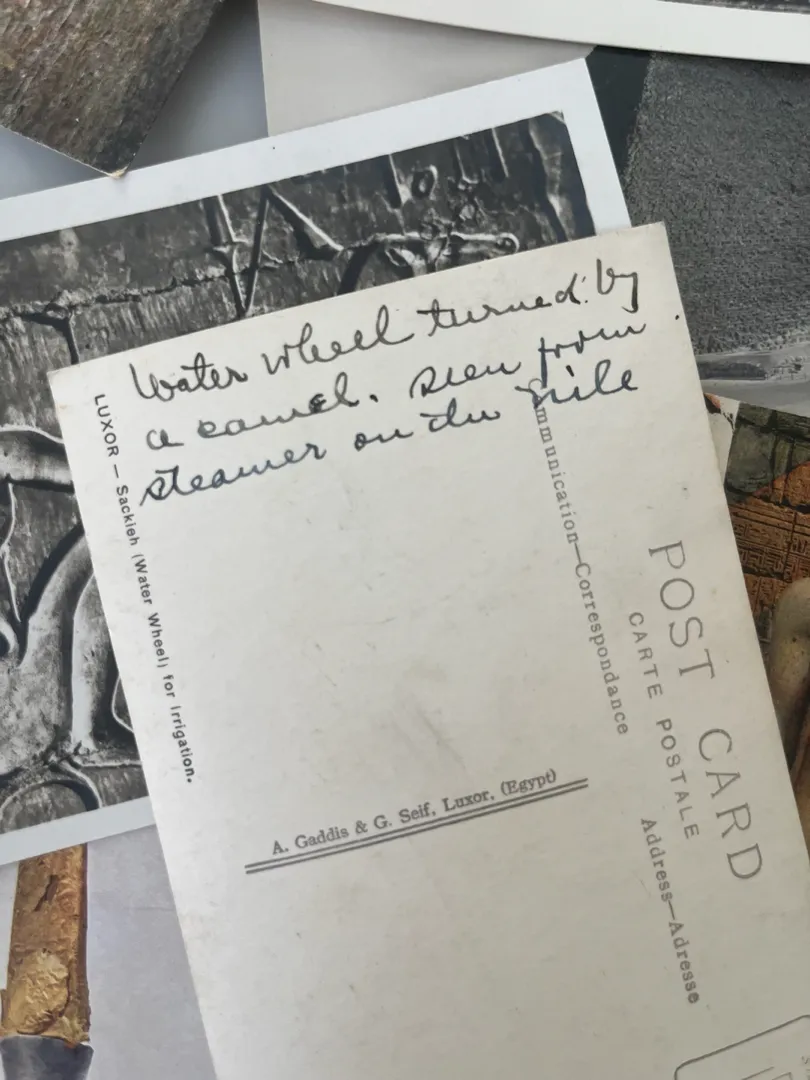 Water wheel turned by
a camel. seen from
steamer on the Nile
LUXOR — Sackieh (Water Wheel) for Irrigation.
Communication—Correspondance
POST CARD
CARTE POSTALE
Address—Adresse
A. Gaddis & G. Seif, Luxor, (Egypt)